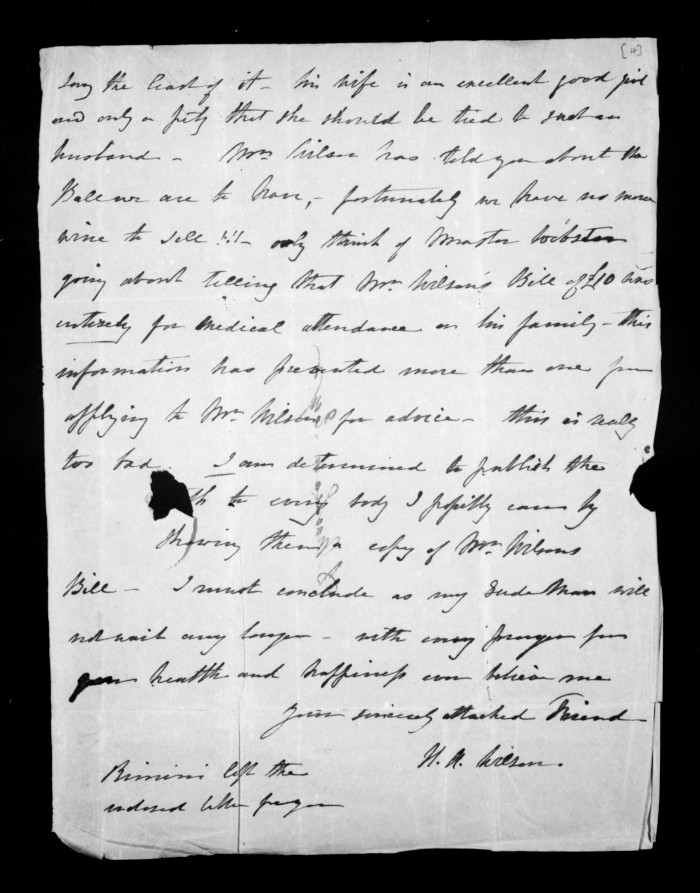 [4]
long the least of it - his wife is an excellent good girl
and only a pity that she should be tied to such an
husband - Mrs Wilson has told you about the
Ball we are to have, - fortunately we have no more
wine to sell !!! - only think of Master Webster
going about telling that Mr. Wilson's Bill of £10 was
entirely for medical attendance on his family - this
information has prevented more than one from
applying to Mr. Wilson for advice - this is really
too bad. I am determined to publish the
th to every body I possibly can by
showing them a copy of Mr. Wilsons
Bill - I must conclude as my man will
not wait any longer - with every prayer for
your health and happiness ever believe me
your sincerely attached Friend
H. A. Wilson.
left the
enclosed letter for you